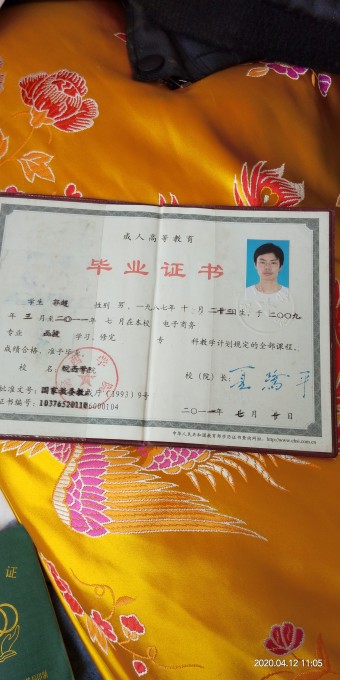 成人高等教育
毕业证书
学生 郭超 性别 男，一九八七年 十 月 二十三 日生，于 二〇〇九
年 三 月至二〇一一年 七 月在本校 电子商务
专业 函授 学习，修完 专 科教学计划规定的全部课程，
成绩合格，准予毕业。
校 名： 皖西学院
校（院）长：
批准文号：国家教委教成厅（1993）9号
证书编号：103765201106000104
二〇一一年 七月 日
中华人民共和国教育部学历证书查询网址：http://www.chsi.com.cn
证
2020.04.12 11:05